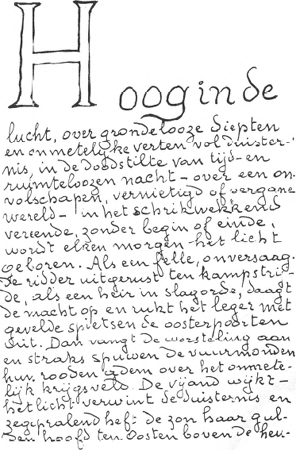 Hoog in de
lucht, over grondelooze diepten
en onmetelijke verten vol duister-
nis, in de doodstilte van tijd- en
ruimteloozen nacht - over een on-
volschapen, vernietigd of vergane
wereld - in het schrikwekkend
vereende, zonder begin of einde,
wordt elken morgen het licht
geboren. Als een felle, onversaag-
de ridder uitgerust ten kampstrij-
de, als een heir in slagorde, daagt
de macht op en rukt het leger met
gevelde spietsen de oosterpoorten
uit. Dan vangt de worsteling aan
en straks spuwen de vuurmonden
hun rooden adem over het onmete-
lijk krijgsveld. De vijand wijkt -
het licht verwint de duisternis en
zegepralend heft de zon haar gul-
den hoofd ten Oosten boven de heu-